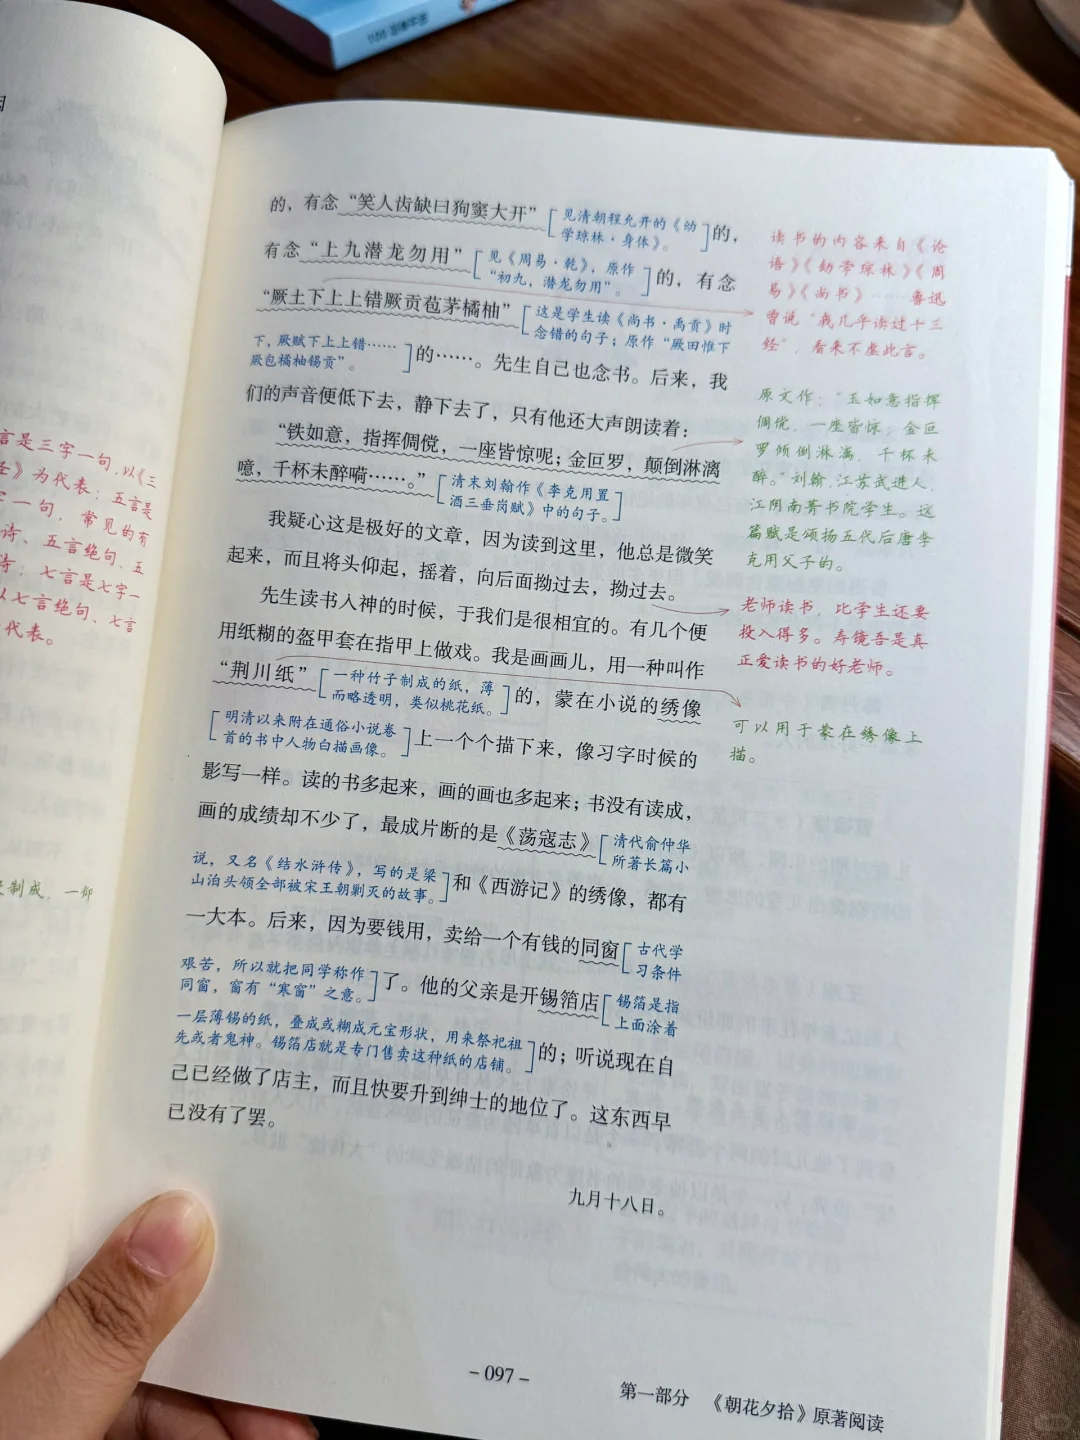 的，有念“笑人齿缺曰狗窦大开”[见清朝程允开的《幼
学琼林·身体》。]的，
有念“上九潜龙勿用”[见《周易·乾》，原作
“初九，潜龙勿用”。]的，有念
“厥土下上上错厥贡苞茅橘柚”[这是学生读《尚书·禹贡》时
念错的句子；原作“厥田惟下
下，厥赋下上上错……
厥包橘柚锡贡”。]的……。先生自己也念书。后来，我
们的声音便低下去，静下去了，只有他还大声朗读着：
“铁如意，指挥倜傥，一座皆惊呢；金叵罗，颠倒淋漓
噫，千杯未醉嗬……。”[清末刘翰作《李克用置
酒三垂岗赋》中的句子。]
我疑心这是极好的文章，因为读到这里，他总是微笑
起来，而且将头仰起，摇着，向后面拗过去，拗过去。
先生读书入神的时候，于我们是很相宜的。有几个便
用纸糊的盔甲套在指甲上做戏。我是画画儿，用一种叫作
“荆川纸”[一种竹子制成的纸，薄
而略透明，类似桃花纸。]的，蒙在小说的绣像
[明清以来附在通俗小说卷
首的书中人物白描画像。]上一个个描下来，像习字时候的
影写一样。读的书多起来，画的画也多起来；书没有读成，
画的成绩却不少了，最成片断的是《荡寇志》[清代俞仲华
所著长篇小
说，又名《结水浒传》，写的是梁
山泊头领全部被宋王朝剿灭的故事。]和《西游记》的绣像，都有
一大本。后来，因为要钱用，卖给一个有钱的同窗[古代学
习条件
艰苦，所以就把同学称作
同窗，窗有“寒窗”之意。]了。他的父亲是开锡箔店[锡箔是指
上面涂着
一层薄锡的纸，叠成或糊成元宝形状，用来祭祀祖
先或者鬼神。锡箔店就是专门售卖这种纸的店铺。]的；听说现在自
己已经做了店主，而且快要升到绅士的地位了。这东西早
已没有了罢。
九月十八日。
读书的内容来自《论
语》《幼学琼林》《周
易》《尚书》……鲁迅
曾说“我几乎读过十三
经”，看来不虚此言。
原文作：“玉如意指挥
倜傥，一座皆惊；金叵
罗倾倒淋漓，千杯未
醉。”刘翰，江苏武进人，
江阴南菁书院学生。这
篇赋是颂扬五代后唐李
克用父子的。
老师读书，比学生还要
投入得多。寿镜吾是真
正爱读书的好老师。
可以用于蒙在绣像上
描。
言是三字一句，以《三
》为代表；五言是
字一句，常见的有
诗、五言绝句、五
；七言是七字一
以七言绝句、七言
代表。
制成，一仰
-097-
第一部分 《朝花夕拾》原著阅读